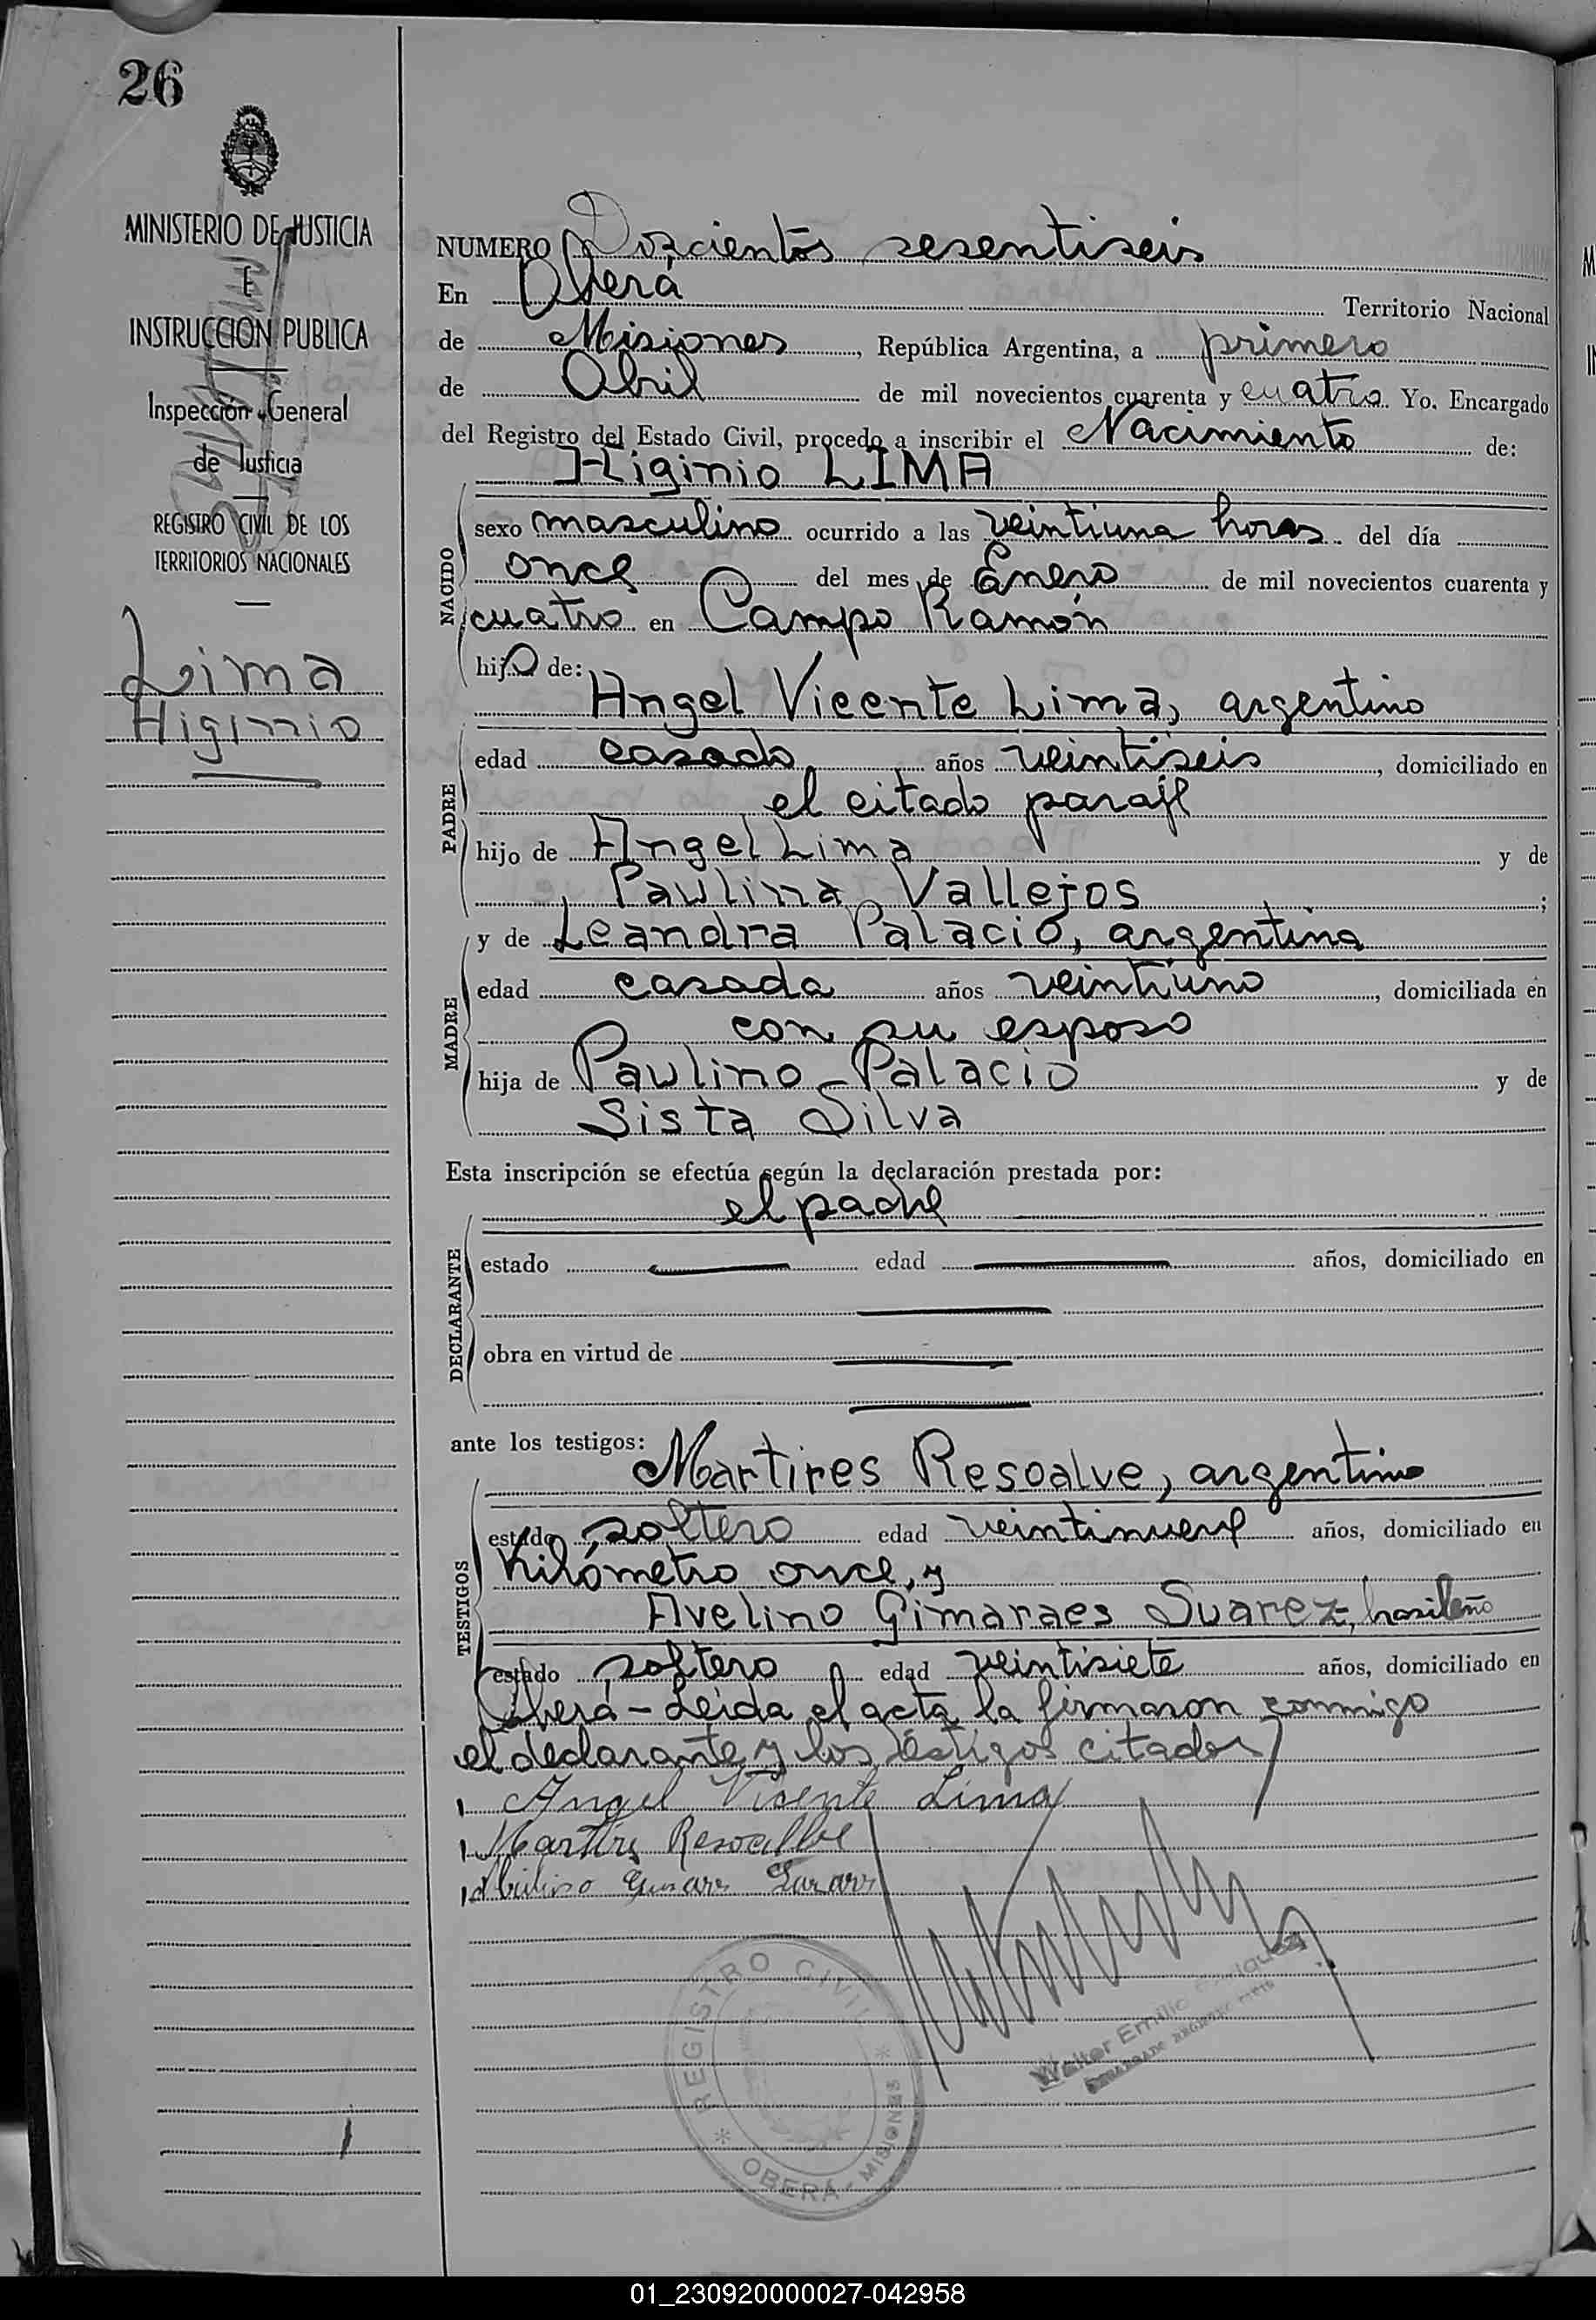 26
MINISTERIO DE JUSTICIA
E
INSTRUCCION PUBLICA
Inspección General
de Justicia
REGISTRO CIVIL DE LOS
TERRITORIOS NACIONALES
Lima
Higinio
NUMERO Doscientos sesentiseis
En Oberá Territorio Nacional
de Misiones, República Argentina, a primero
de Abril de mil novecientos cuarenta y cuatro Yo, Encargado
del Registro del Estado Civil, procedo a inscribir el Nacimiento de:
Higinio LIMA
NACIDO
sexo masculino ocurrido a las veintiuna horas del día
once del mes de Enero de mil novecientos cuarenta y
cuatro en Campo Ramón
hijo de:
Angel Vicente Lima, argentino
PADRE
edad casado años veintiseis, domiciliado en
el citado paraje
hijo de Angel Lima y de
Paulina Vallejos;
y de Leandra Palacio, argentina
MADRE
edad casada años veintiuno, domiciliada en
con su esposo
hija de Paulino Palacio y de
Sista Silva
Esta inscripción se efectúa según la declaración prestada por:
el padre
DECLARANTE
estado edad años, domiciliado en
obra en virtud de
ante los testigos:
Martires Resoalve, argentino
TESTIGOS
estado soltero edad veintinueve años, domiciliado en
Kilómetro once, y
Avelino Gimaraes Suarez, brasileño
estado soltero edad veintisiete años, domiciliado en
Oberá - Leida el acta la firmaron conmigo
el declarante y los testigos citados
Angel Vicente Lima
Martires
REGISTRO CIVIL
OBERÁ - MISIONES
Walter Emilio
ENCARGADO REGISTRO CIVIL
01_230920000027-042958